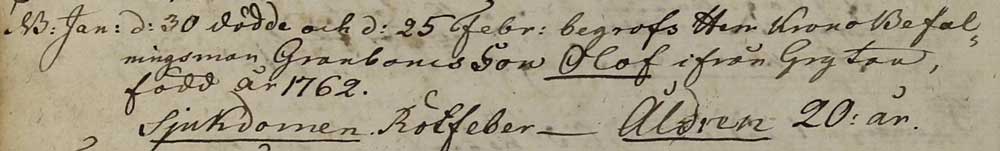 NB: Jan: d: 30 dödde och d: 25 Febr: begrofs Herr Krono Befal=
ningsman Granboms Son Olof ifrån Gryttan,
född år 1762.
Sjukdomen. Rötfeber — Åldren 20: år.